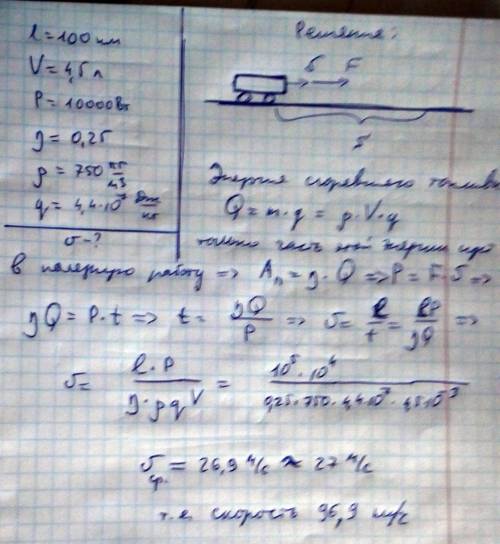 l = 100 км
V = 4,5 л
P = 10000 Вт
η = 0,25
ρ = 750 кг/м3
q = 4,4·10^7 Дж/кг
υ - ?
Решение:
υ F
S
Энергия сгоревшего топлива
Q = m·q = ρ·V·q
только часть этой энергии
в полезную работу => Aп = η·Q => P = F·υ =>
ηQ = P·t => t = ηQ/P => υ = l/t = lP/ηQ =>
υ = l·P/η·ρqV = 10^5·10^4/0,25·750·4,4·10^7·4,5·10^-3
υср. = 26,9 м/с ≈ 27 м/с
т.е. скорость 96,9 км/ч